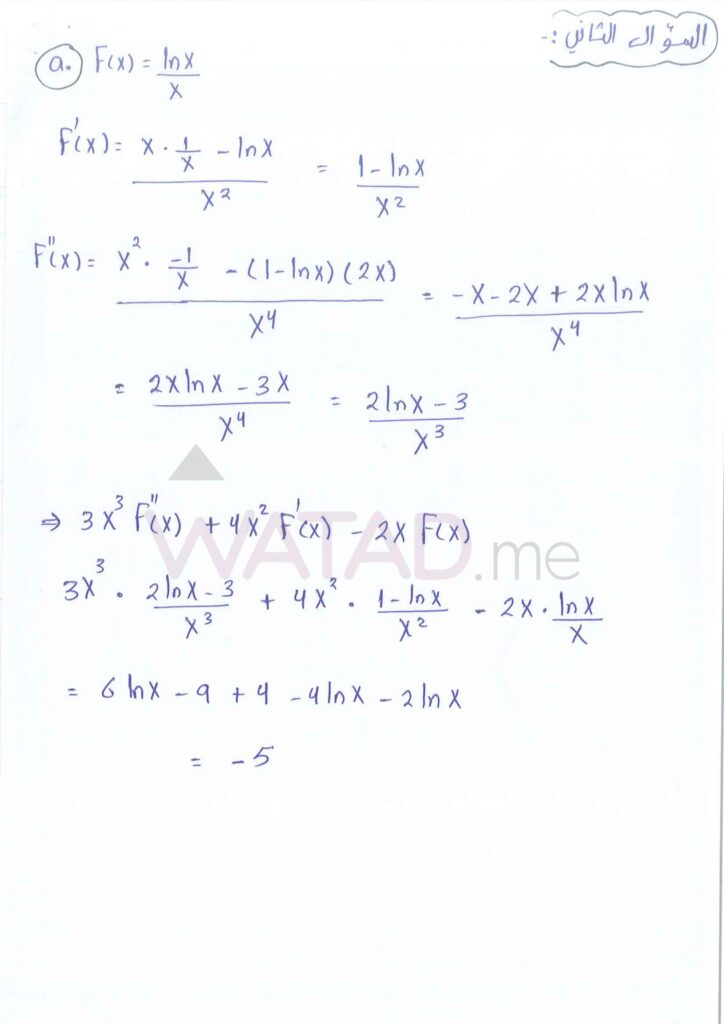 السؤال الثاني :-
a. F(x) = lnx / x
F'(x) = (x · 1/x - lnx) / x² = (1 - lnx) / x²
F''(x) = (x² · -1/x - (1-lnx)(2x)) / x⁴ = (-x - 2x + 2x lnx) / x⁴
= (2x lnx - 3x) / x⁴ = (2lnx - 3) / x³
⇒ 3x³ F''(x) + 4x² F'(x) - 2x F(x)
WATAD.me
3x³ · (2lnx - 3) / x³ + 4x² · (1 - lnx) / x² - 2x · lnx / x
= 6 lnx - 9 + 4 - 4lnx - 2lnx
= -5